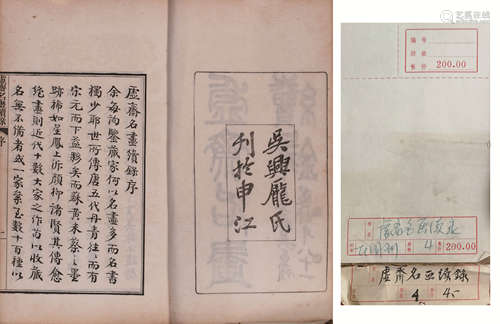 虛齋名畫續錄序
余每詢鑒藏家何以名畫多而名書
獨少耶世所傳唐五代丹青往〻而有
宋元而下益夥矣而蘇黃米蔡之墨
跡稀如星鳳上泝顏柳諸賢其傳愈
絕畫則近代十數大家之作苟以收藏
名無不備者或一家至數十百種以
虛齋名畫續錄 序
吳興龐氏
刊於申江
编号
售价 200.00
4 200.00
虚斋名画续錄
4 4-